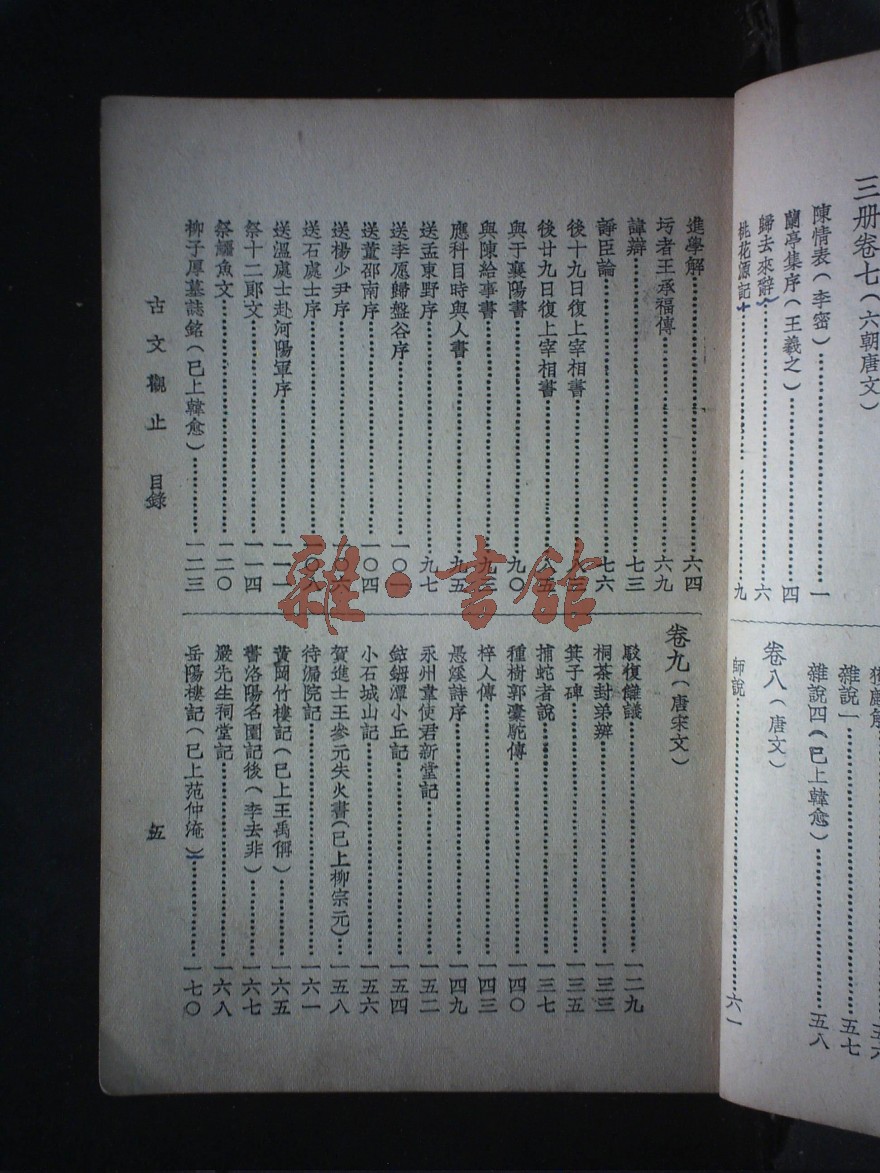 三册卷七（六朝唐文）
陳情表（李密）⋯⋯一
蘭亭集序（王羲之）⋯⋯四
歸去來辭⋯⋯六
桃花源記⋯⋯九
雜說四（已上韓愈）⋯⋯五八
雜說一⋯⋯五七
卷八（唐文）
師說⋯⋯六一
進學解⋯⋯六四
圬者王承福傳⋯⋯六九
諱辯⋯⋯七三
諍臣論⋯⋯七六
後十九日復上宰相書⋯⋯八三
後廿九日復上宰相書⋯⋯八五
與于襄陽書⋯⋯九〇
與陳給事書⋯⋯九三
應科目時與人書⋯⋯九五
送孟東野序⋯⋯九七
送李愿歸盤谷序⋯⋯一〇一
送董邵南序⋯⋯一〇四
送楊少尹序⋯⋯一〇六
送石處士序⋯⋯一〇八
送溫處士赴河陽軍序⋯⋯一一一
祭十二郎文⋯⋯一一四
祭鱷魚文⋯⋯一二〇
柳子厚墓誌銘（已上韓愈）⋯⋯一二三
卷九（唐宋文）
駁復讎議⋯⋯一二九
桐葉封弟辨⋯⋯一三三
箕子碑⋯⋯一三五
捕蛇者說⋯⋯一三七
種樹郭橐駝傳⋯⋯一四〇
梓人傳⋯⋯一四三
愚溪詩序⋯⋯一四九
永州韋使君新堂記⋯⋯一五二
鈷鉧潭小丘記⋯⋯一五四
小石城山記⋯⋯一五六
賀進士王參元失火書（已上柳宗元）⋯⋯一五八
待漏院記⋯⋯一六一
黃岡竹樓記（已上王禹偁）⋯⋯一六五
書洛陽名園記後（李去非）⋯⋯一六七
嚴先生祠堂記⋯⋯一六八
岳陽樓記（已上范仲淹）⋯⋯一七〇
古文觀止 目錄 五
雜·書館